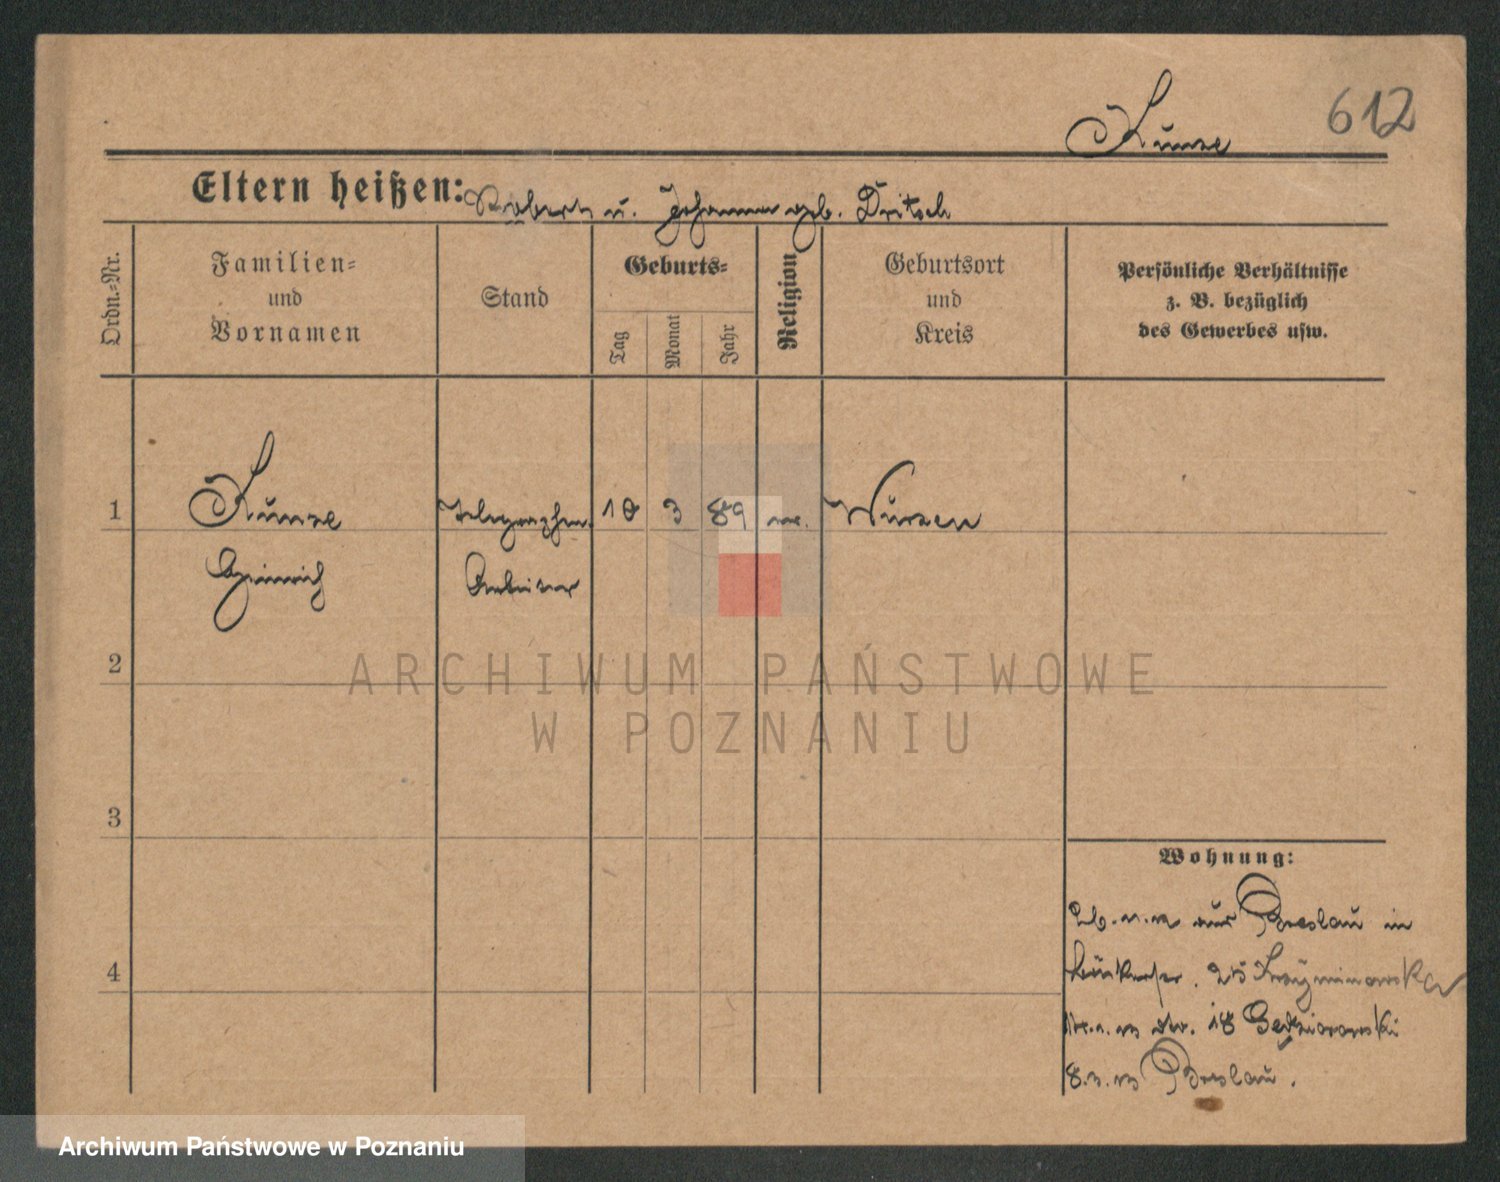 612
Kunze
Eltern heißen: Robert u. Johanna geb. Dritsch
Ordn.-Nr.
Familien-
und
Vornamen
Stand
Geburts-
Tag
Monat
Jahr
Religion
Geburtsort
und
Kreis
Persönliche Verhältnisse
z. B. bezüglich
des Gewerbes usw.
1 Kunze Telegraphen 10 3 89 ev. Wurzen
Heinrich Arbeiter
2
3
4
Wohnung:
aus Breslau in
25
str. 18
Breslau.
ARCHIWUM PAŃSTWOWE
W POZNANIU
Archiwum Państwowe w Poznaniu